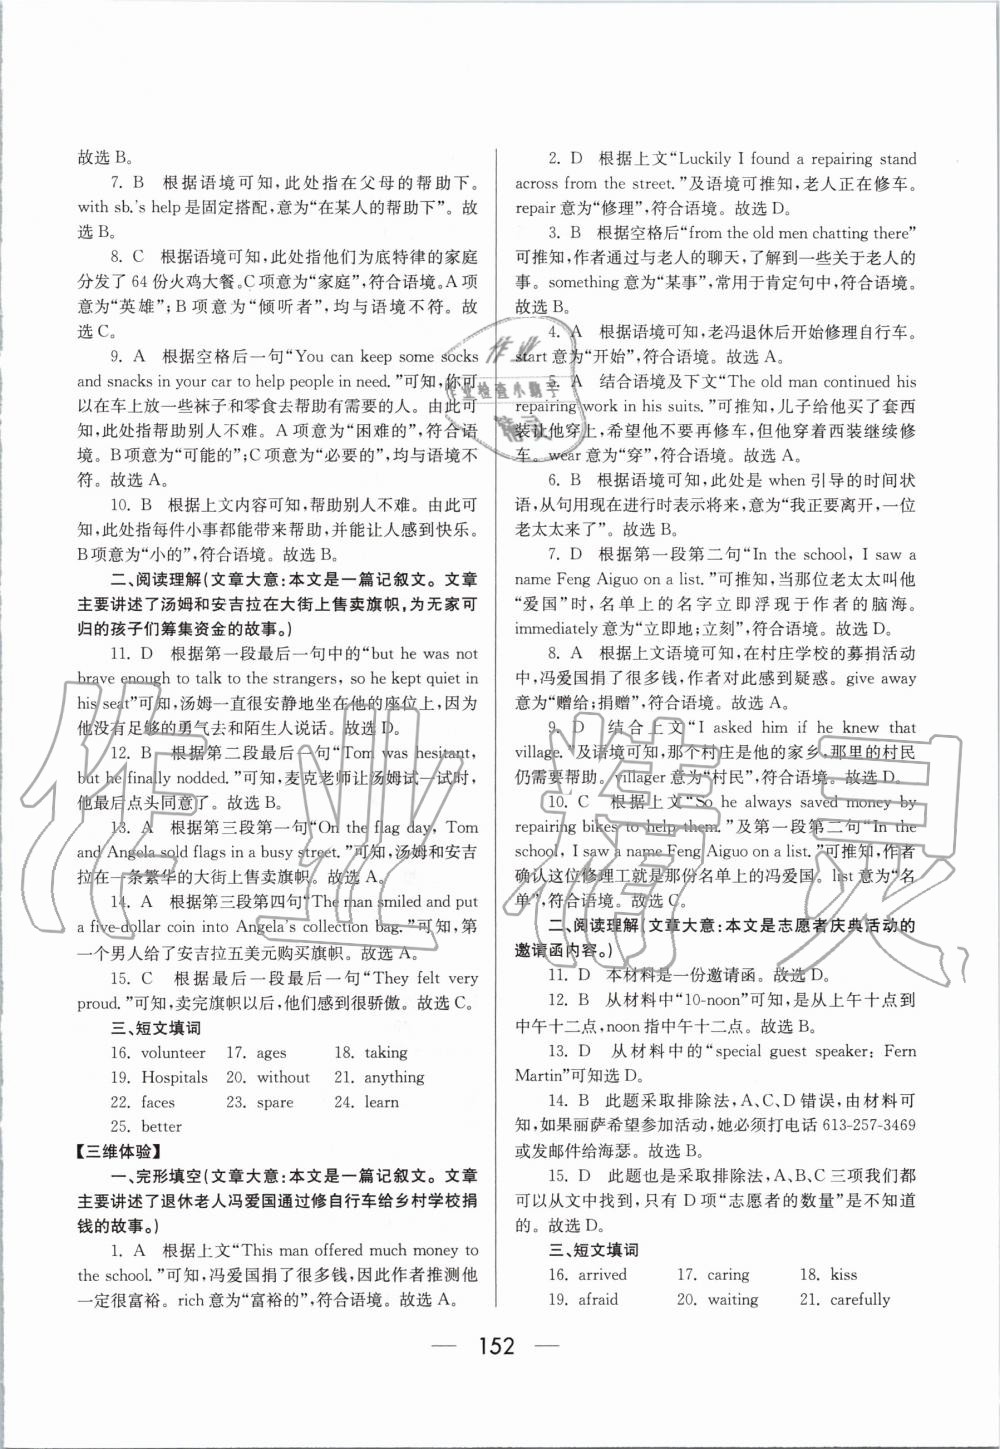 故选 B。
7. B 根据语境可知,此处指在父母的帮助下。
with sb.'s help 是固定搭配,意为“在某人的帮助下”。故
选 B。
8. C 根据语境可知,此处指他们为底特律的家庭
分发了 64 份火鸡大餐。C 项意为“家庭”,符合语境。A 项
意为“英雄”;B 项意为“倾听者”,均与语境不符。故
选 C。
9. A 根据空格后一句“You can keep some socks
and snacks in your car to help people in need.”可知,你可
以在车上放一些袜子和零食去帮助有需要的人。由此可
知,此处指帮助别人不难。A 项意为“困难的”,符合语
境。B 项意为“可能的”;C 项意为“必要的”,均与语境不
符。故选 A。
10. B 根据上文内容可知,帮助别人不难。由此可
知,此处指每件小事都能带来帮助,并能让人感到快乐。
B 项意为“小的”,符合语境。故选 B。
二、阅读理解(文章大意:本文是一篇记叙文。文章
主要讲述了汤姆和安吉拉在大街上售卖旗帜,为无家可
归的孩子们筹集资金的故事。)
11. D 根据第一段最后一句中的“but he was not
brave enough to talk to the strangers, so he kept quiet in
his seat”可知,汤姆一直很安静地坐在他的座位上,因为
他没有足够的勇气去和陌生人说话。故选 D。
12. B 根据第二段最后一句“Tom was hesitant,
but he finally nodded.”可知,麦克老师让汤姆试一试时,
他最后点头同意了。故选 B。
13. A 根据第三段第一句“On the flag day, Tom
and Angela sold flags in a busy street.”可知,汤姆和安吉
拉在一条繁华的大街上售卖旗帜。故选 A。
14. A 根据第三段第四句“The man smiled and put
a five-dollar coin into Angela's collection bag.”可知,第
一个男人给了安吉拉五美元购买旗帜。故选 A。
15. C 根据最后一段最后一句“They felt very
proud.”可知,卖完旗帜以后,他们感到很骄傲。故选 C。
三、短文填词
16. volunteer 17. ages 18. taking
19. Hospitals 20. without 21. anything
22. faces 23. spare 24. learn
25. better
【三维体验】
一、完形填空(文章大意:本文是一篇记叙文。文章
主要讲述了退休老人冯爱国通过修自行车给乡村学校捐
钱的故事。)
1. A 根据上文“This man offered much money to
the school.”可知,冯爱国捐了很多钱,因此作者推测他
一定很富裕。rich 意为“富裕的”,符合语境。故选 A。
2. D 根据上文“Luckily I found a repairing stand
across from the street.”及语境可推知,老人正在修车。
repair 意为“修理”,符合语境。故选 D。
3. B 根据空格后“from the old men chatting there”
可推知,作者通过与老人的聊天,了解到一些关于老人的
事。something 意为“某事”,常用于肯定句中,符合语境。
故选 B。
4. A 根据语境可知,老冯退休后开始修理自行车。
start 意为“开始”,符合语境。故选 A。
5. A 结合语境及下文“The old man continued his
repairing work in his suits.”可推知,儿子给他买了套西
装让他穿上,希望他不要再修车,但他穿着西装继续修
车。wear 意为“穿”,符合语境。故选 A。
6. B 根据语境可知,此处是 when 引导的时间状
语,从句用现在进行时表示将来,意为“我正要离开,一位
老太太来了”。故选 B。
7. D 根据第一段第二句“In the school, I saw a
name Feng Aiguo on a list.”可知,当那位老太太叫他
“爱国”时,名单上的名字立即浮现于作者的脑海。
immediately 意为“立即地;立刻”,符合语境。故选 D。
8. A 根据上文语境可知,在村庄学校的募捐活动
中,冯爱国捐了很多钱,作者对此感到疑惑。give away
意为“赠给;捐赠”,符合语境。故选 A。
9. D 结合上文“I asked him if he knew that
village.”及语境可知,那个村庄是他的家乡,那里的村民
仍需要帮助。villager 意为“村民”,符合语境。故选 D。
10. C 根据上文“So he always saved money by
repairing bikes to help them.”及第一段第二句“In the
school, I saw a name Feng Aiguo on a list.”可推知,作者
确认这位修理工就是那份名单上的冯爱国。list 意为“名
单”,符合语境。故选 C。
二、阅读理解(文章大意:本文是志愿者庆典活动的
邀请函内容。)
11. D 本材料是一份邀请函。故选 D。
12. B 从材料中“10-noon”可知,是从上午十点到
中午十二点,noon 指中午十二点。故选 B。
13. D 从材料中的“special guest speaker: Fern
Martin”可知选 D。
14. B 此题采取排除法,A、C、D 错误,由材料可
知,如果丽萨希望参加活动,她必须打电话 613-257-3469
或发邮件给海瑟。故选 B。
15. D 此题也是采取排除法,A、B、C 三项我们都
可以从文中找到,只有 D 项“志愿者的数量”是不知道
的。故选 D。
三、短文填词
16. arrived 17. caring 18. kiss
19. afraid 20. waiting 21. carefully
152
作业
作业检查小助手
精灵
作业精灵